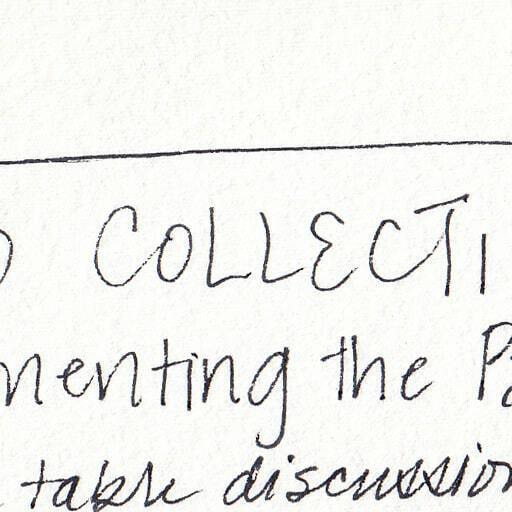 COLLECTI
menting the Pa
table discussion